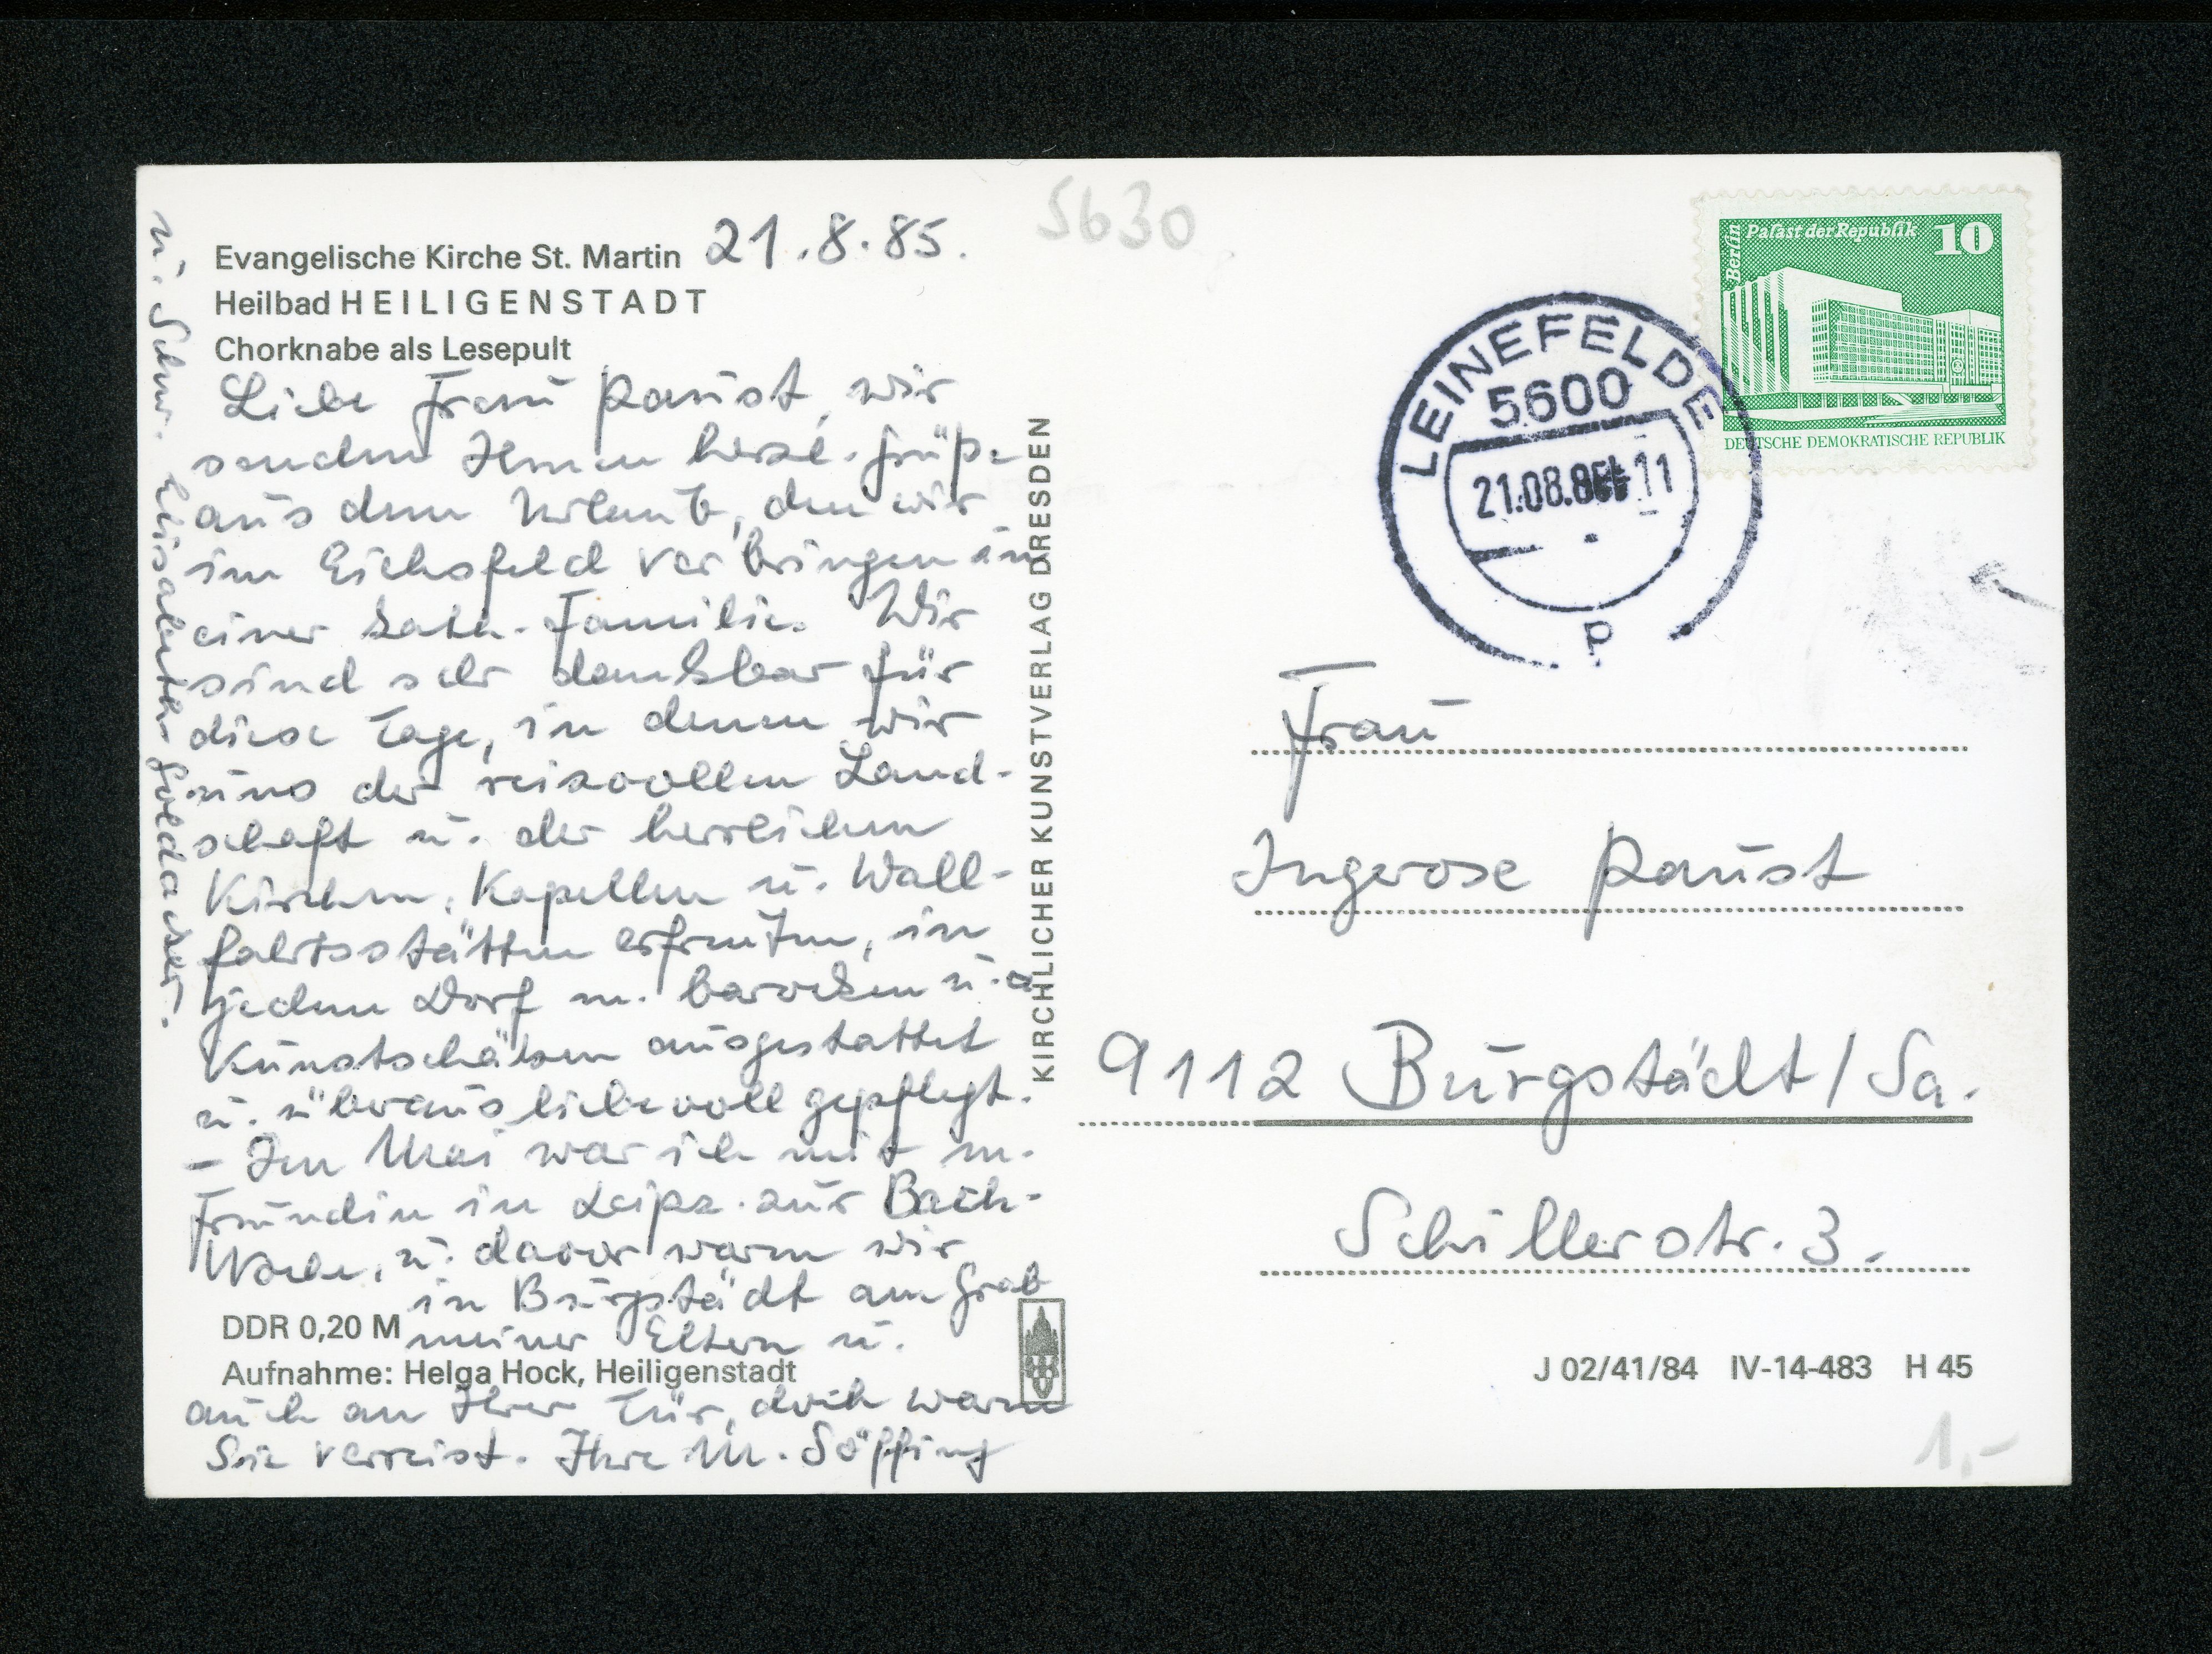 Evangelische Kirche St. Martin 21.8.85.
Heilbad HEILIGENSTADT
Chorknabe als Lesepult
Liebe Frau Paust, wir
senden Ihnen herzl. Grüße
aus dem Urlaub, den wir
im Eichsfeld verbringen in
einer kath. Familie. Wir
sind sehr dankbar für
diese Tage, in denen wir
uns der reizvollen Land-
schaft u. der herrlichen
Kirchen, Kapellen u. Wall-
fahrtsstätten erfreuten, in
jedem Dorf m. barocken u. a.
Kunstschätzen ausgestattet
u. überaus liebevoll gepflegt.
- Im Mai war ich mit m.
Freundin in Leipz. zur Bach-
Woche, u. davor waren wir
in Burgstädt am Grab
DDR 0,20 M meiner Eltern u.
Aufnahme: Helga Hock, Heiligenstadt
auch an Ihrer Tür, doch waren
Sie verreist. Ihre M. Söffing
u. Schw. Elisabeth Goldacker.
KIRCHLICHER KUNSTVERLAG DRESDEN
5630
Berlin Palast der Republik 10
DEUTSCHE DEMOKRATISCHE REPUBLIK
LEINEFELDE
5600
21.08.85 11
p
Frau
Ingerose Paust
9112 Burgstädt/Sa.
Schillerstr. 3.
J 02/41/84 IV-14-483 H 45
1,-